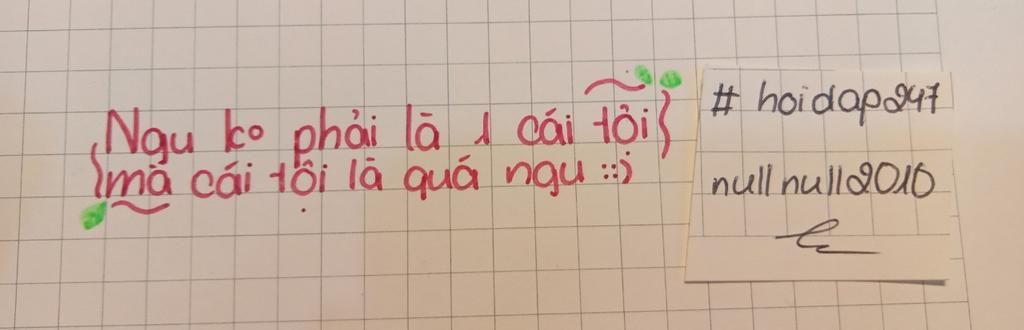 Ngu ko phải là 1 cái tôi
mà cái tội là quá ngu ::)
# hoidap247
nullnull2010